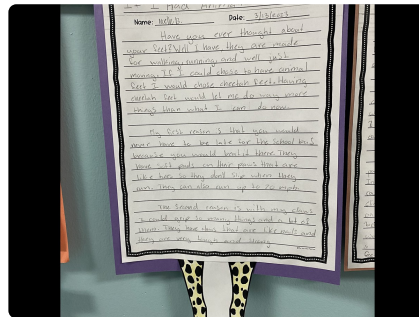 If I Had Animal
Name: Date: 3/13/2023
Have you ever thought about
your feet? Well I have they are made
for walking, running and well just
moving. If I could chose to have animal
feet I would chose cheetah feet. Having
cheetah feet would let me do way more
things than what I can do now.
My first reason is that you would
never have to be late for the school bus
because you would beat it there. They
have soft pads on their paws that are
like so they don't slip when they
run. They can also run up to 70 mph.
The second reason is with my claws
I could grip so many things and a lot of
more. They have claws that are like nails and
they are very long and sharp